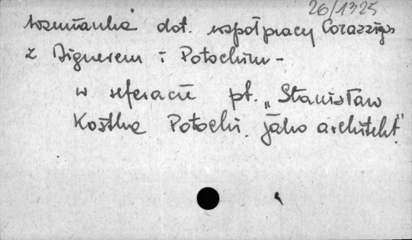 26/1325
wzmianka dot. współpracy Corazziego
z Aignerem i Potockim -
w referacie pt. „Stanisław
Kostka Potocki jako architekt"